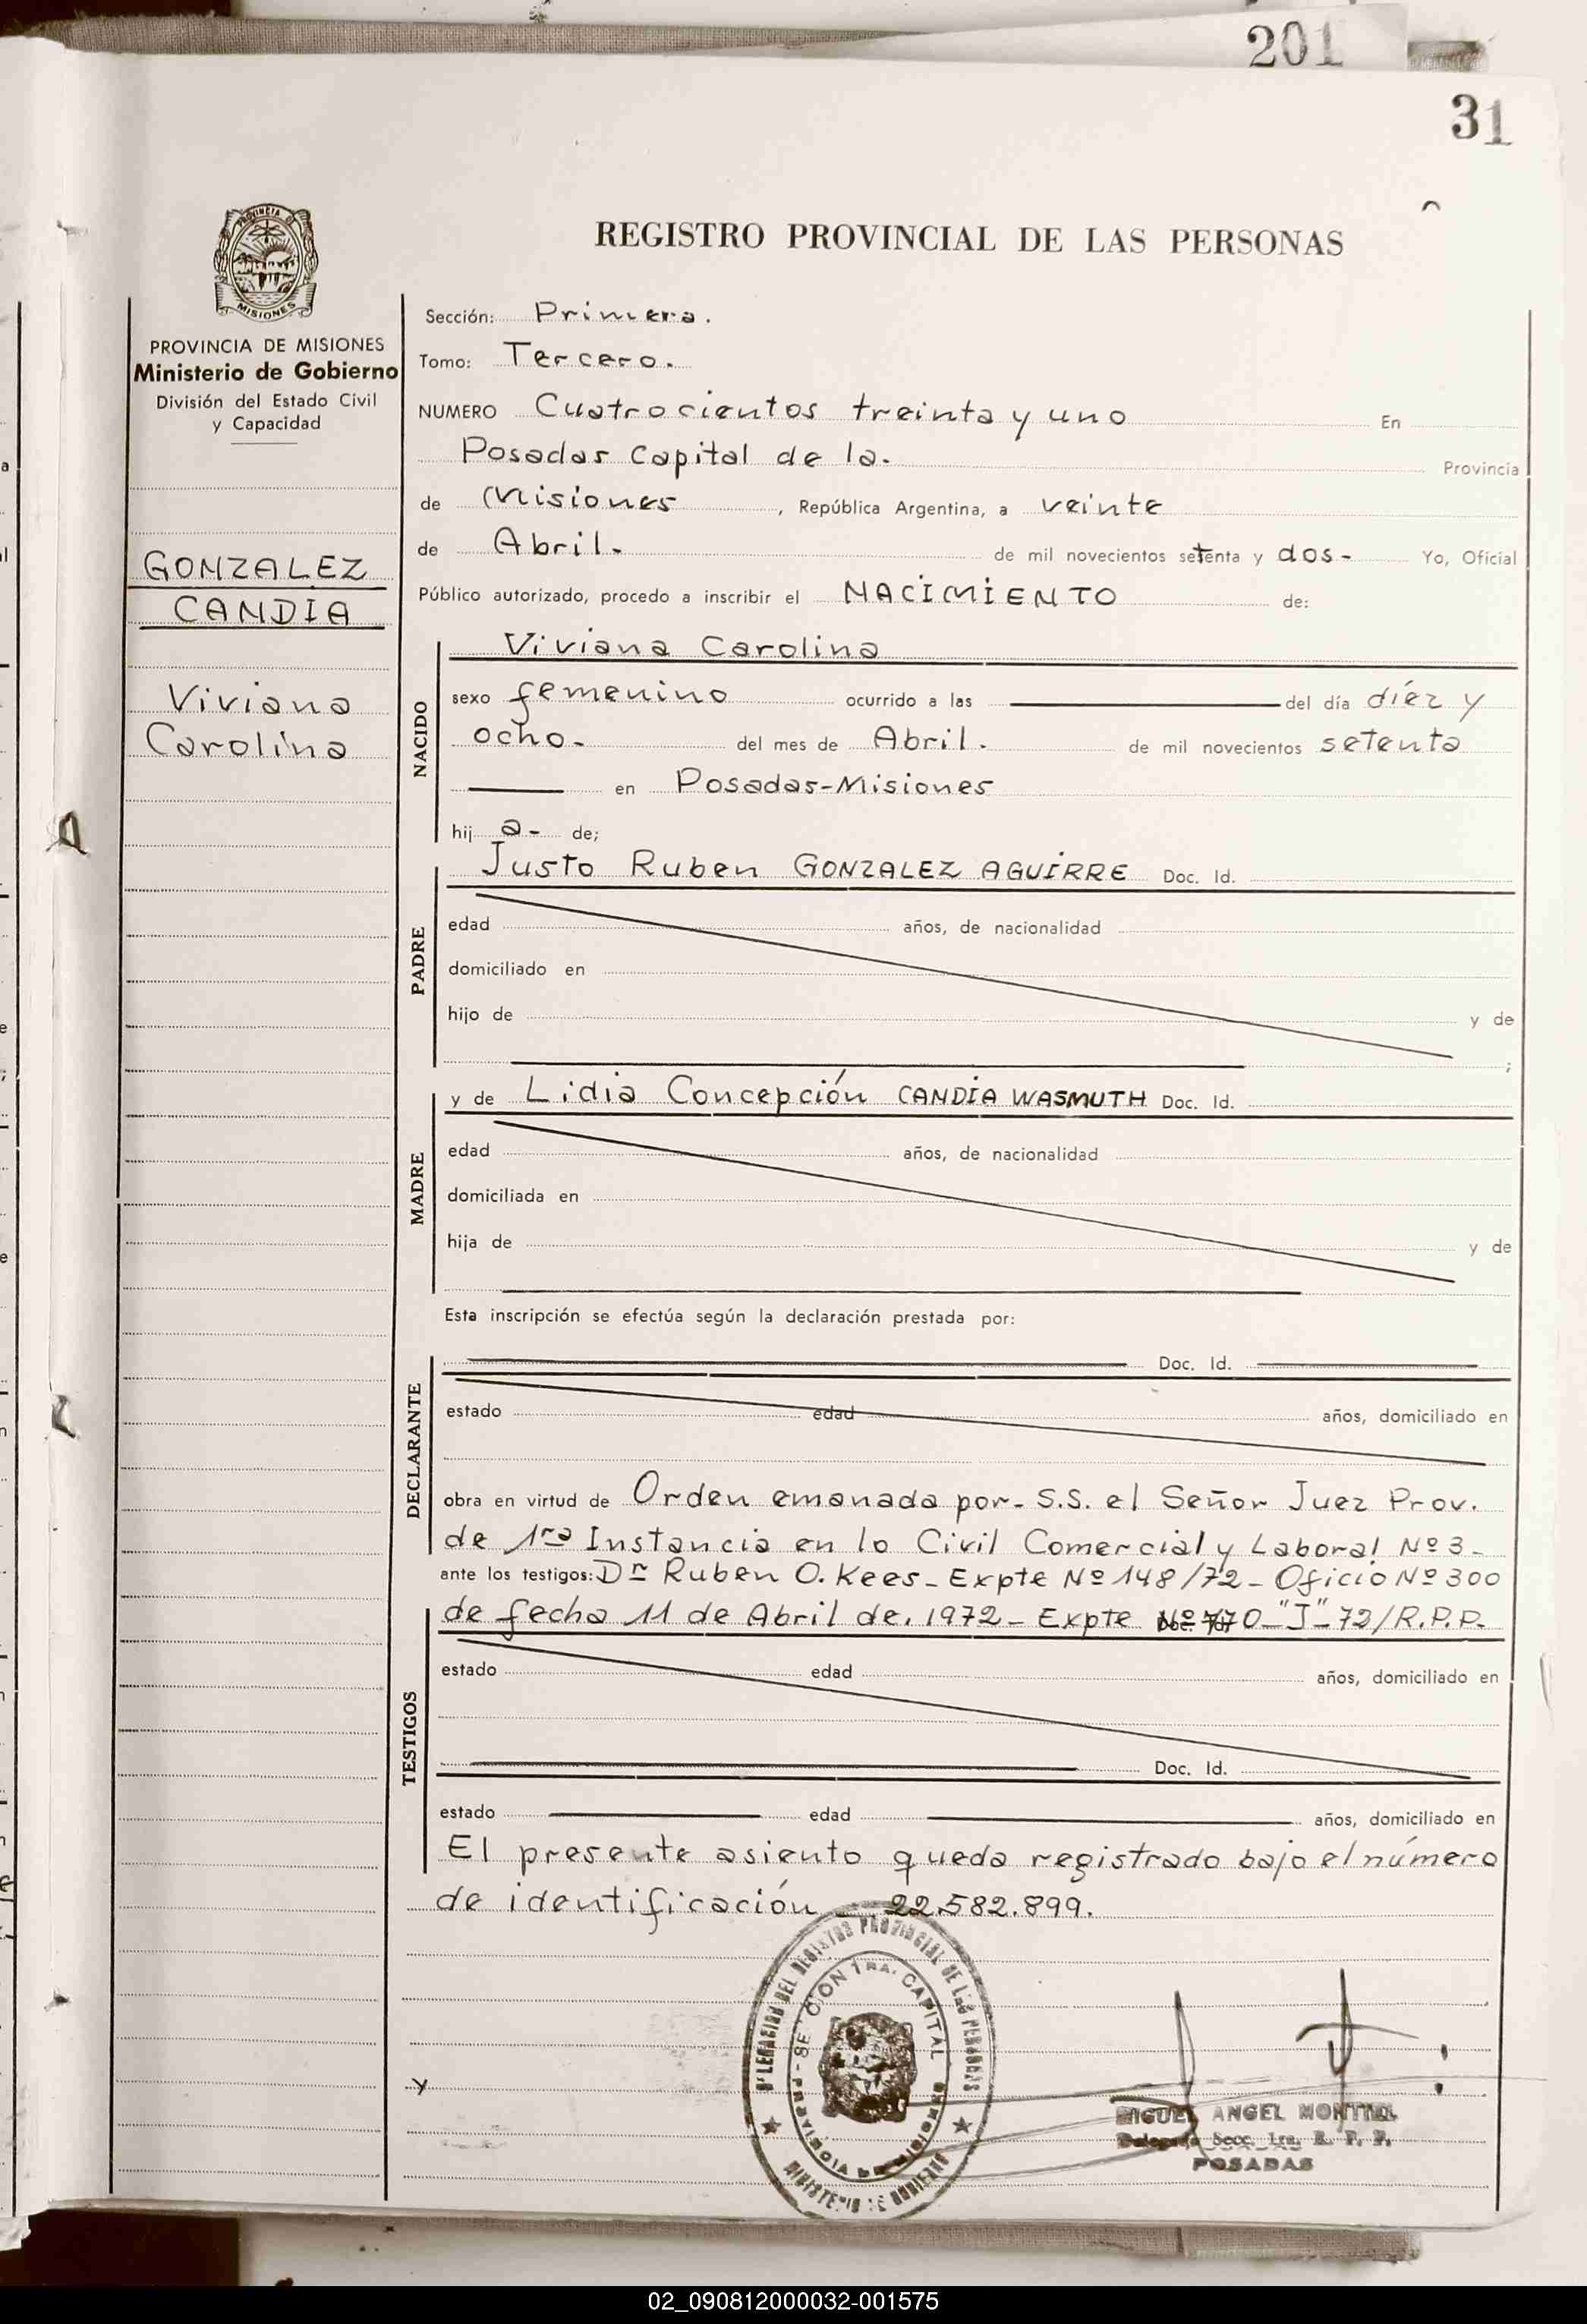 201
31
REGISTRO PROVINCIAL DE LAS PERSONAS
PROVINCIA DE
MISIONES
PROVINCIA DE MISIONES
Ministerio de Gobierno
División del Estado Civil
y Capacidad
GONZALEZ
CANDIA
Viviana
Carolina
Sección: Primera.
Tomo: Tercero.
NUMERO Cuatrocientos treinta y uno En
Posadas Capital de la. Provincia
de Misiones, República Argentina, a veinte
de Abril. de mil novecientos setenta y dos- Yo, Oficial
Público autorizado, procedo a inscribir el NACIMIENTO de:
NACIDO
Viviana Carolina
sexo femenino ocurrido a las del día diez y
ocho. del mes de Abril. de mil novecientos setenta
en Posadas-Misiones
hij a- de;
PADRE
Justo Ruben GONZALEZ AGUIRRE Doc. Id.
edad años, de nacionalidad
domiciliado en
hijo de y de
;
MADRE
y de Lidia Concepción CANDIA WASMUTH Doc. Id.
edad años, de nacionalidad
domiciliada en
hija de y de
Esta inscripción se efectúa según la declaración prestada por:
DECLARANTE
Doc. Id.
estado edad años, domiciliado en
obra en virtud de Orden emanada por- S.S. el Señor Juez Prov.
de 1ra Instancia en lo Civil Comercial y Laboral Nº 3-
ante los testigos: Dr Ruben O. Kees- Expte Nº 148/72- Oficio Nº 300
de fecha 11 de Abril de. 1972- Expte Nº 770-"J"-72/R.P.P.
TESTIGOS
estado edad años, domiciliado en
Doc. Id.
estado edad años, domiciliado en
El presente asiento queda registrado bajo el número
de identificación 22.582.899.
DELEGACION DEL REGISTRO PROVINCIAL DE LAS PERSONAS
SECCION 1RA. CAPITAL
PROVINCIA DE MISIONES
MINISTERIO DE GOBIERNO
MIGUEL ANGEL MONTIEL
Delegado Secc. 1ra. R. P. P.
POSADAS
02_090812000032-001575